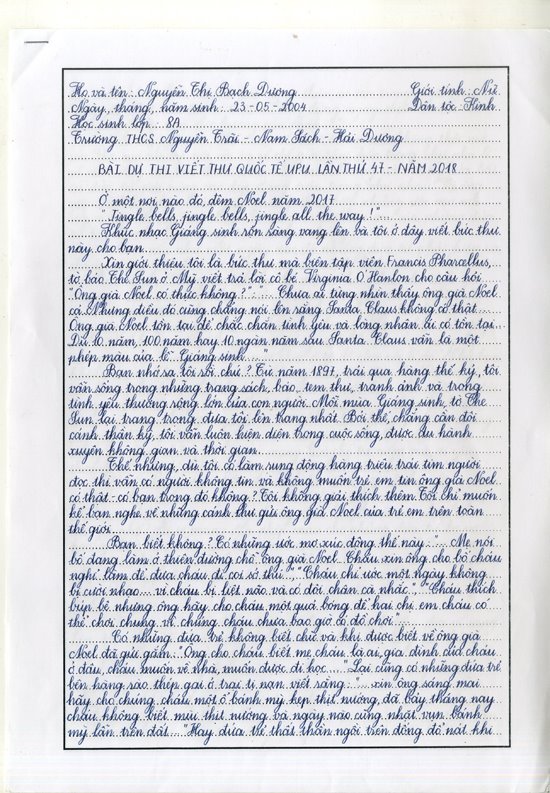 Họ và tên: Nguyễn Thị Bạch Dương Giới tính: Nữ
Ngày, tháng, năm sinh: 23-05-2004 Dân tộc: Kinh
Học sinh lớp: 8A
Trường THCS Nguyễn Trãi - Nam Sách - Hải Dương
BÀI DỰ THI VIẾT THƯ QUỐC TẾ UPU LẦN THỨ 47 - NĂM 2018
Ở một nơi nào đó, đêm Noel năm 2017
"Jingle bells, jingle bells, jingle all the way!"...
Khúc nhạc Giáng sinh rộn ràng vang lên và tôi ở đây viết bức thư
này cho bạn.
Xin giới thiệu tôi là bức thư mà biên tập viên Francis Pharcellus,
tờ báo The Sun ở Mỹ viết trả lời cô bé Virginia O'Hanlon cho câu hỏi
"Ông già Noel có thực không?" "... Chưa ai từng nhìn thấy ông già Noel
cả. Nhưng điều đó cũng chẳng nói lên rằng Santa Claus không có thật...
Ông già Noel tồn tại để chắc chắn tình yêu và lòng nhân ái có tồn tại.
Dù 10 năm, 100 năm hay 10 ngàn năm sau Santa Claus vẫn là một
phép màu của lễ Giáng sinh...."
Bạn nhớ ra tôi rồi chứ? Từ năm 1897, trải qua hàng thế kỷ, tôi
vẫn sống trong những trang sách, báo, tem thư, tranh ảnh và trong
tình yêu thương rộng lớn của con người. Mỗi mùa Giáng sinh, tờ The
Sun lại trang trọng đưa tôi lên trang nhất. Bởi thế, chẳng cần đôi
cánh thần kỳ, tôi vẫn luôn hiện diện trong cuộc sống, được du hành
xuyên không gian và thời gian.
Thế nhưng, dù tôi có làm rung động hàng triệu trái tim người
đọc thì vẫn có người không tin và không muốn trẻ em tin ông già Noel
có thật - có bạn trong đó không? Tôi không giải thích thêm. Tôi chỉ muốn
kể bạn nghe về những cánh thư gửi ông già Noel của trẻ em trên toàn
thế giới.
Bạn biết không? Có những ước mơ xúc động thế này: "... Mẹ nói
bố đang làm ở thiên đường chỗ ông già Noel. Cháu xin ông cho bố cháu
nghỉ làm để đưa cháu đi coi sở thú...", "Cháu chỉ ước một ngày không
bị cười nhạo... vì cháu bị liệt não và có đôi chân cà nhắc", "Cháu thích
búp bê nhưng ông hãy cho cháu một quả bóng để hai chị em cháu có
thể chơi chung vì chúng cháu chưa bao giờ có đồ chơi"...
Có những đứa trẻ không biết chữ và khi được biết về ông già
Noel đã gửi gắm: "Ông cho cháu biết mẹ cháu là ai, gia đình của cháu
ở đâu, cháu muốn về nhà, muốn được đi học...." Lại cũng có những đứa trẻ
bên hàng rào thép gai ở trại tị nạn viết rằng: "... xin ông sáng mai
hãy cho chúng cháu một ổ bánh mỳ kẹp thịt nướng, đã bảy tháng nay
cháu không biết mùi thịt nướng và ngày nào cũng nhặt vụn bánh
mỳ lẫn trên đất..." Hay đứa trẻ thất thần ngồi trên đống đổ nát khi